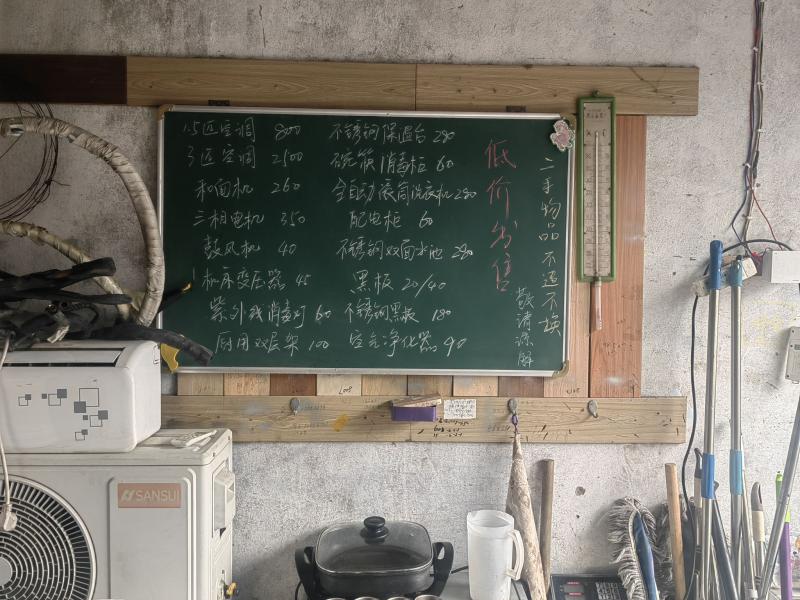 1.5匹空调 800
3匹空调 2500
和面机 260
三相电机 350
鼓风机 40
机床变压器 45
紫外线消毒灯 60
厨用双层架 100
不锈钢保温台 280
碗筷消毒柜 60
全自动滚筒洗衣机 280
配电柜 60
不锈钢双面水池 280
黑板 20/40
不锈钢黑板 180
空气净化器 90
低价出售
二手物品不退不换
敬请谅解
SANSUI